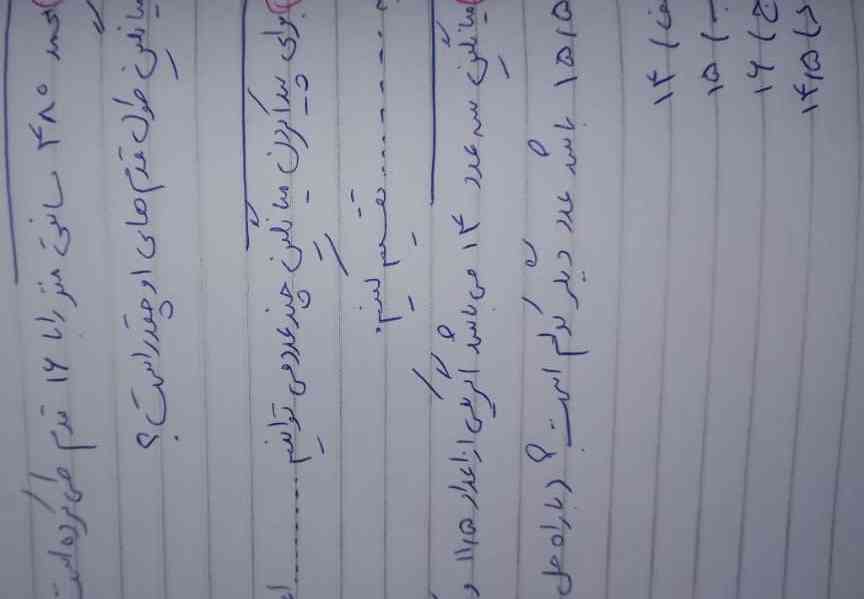 محمد ۴۸۰ سانتی متر را با ۱۶ قدم طی کرده است
میانگین طول قدم های او چقدر است؟
برای پیدا کردن میانگین چند عدد می توانیم ..........
.......... تقسیم کنیم.
میانگین سه عدد ۱۴ می باشد اگر یکی از اعداد ۱۱٫۵ و
۱۵٫۵ باشد عدد دیگر کدام است؟ (با راه حل
الف) ۱۴
ب) ۱۵
ج) ۱۶
د) ۱۴٫۵